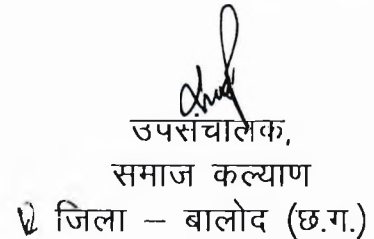 उपसंचालक,
समाज कल्याण
जिला – बालोद (छ.ग.)